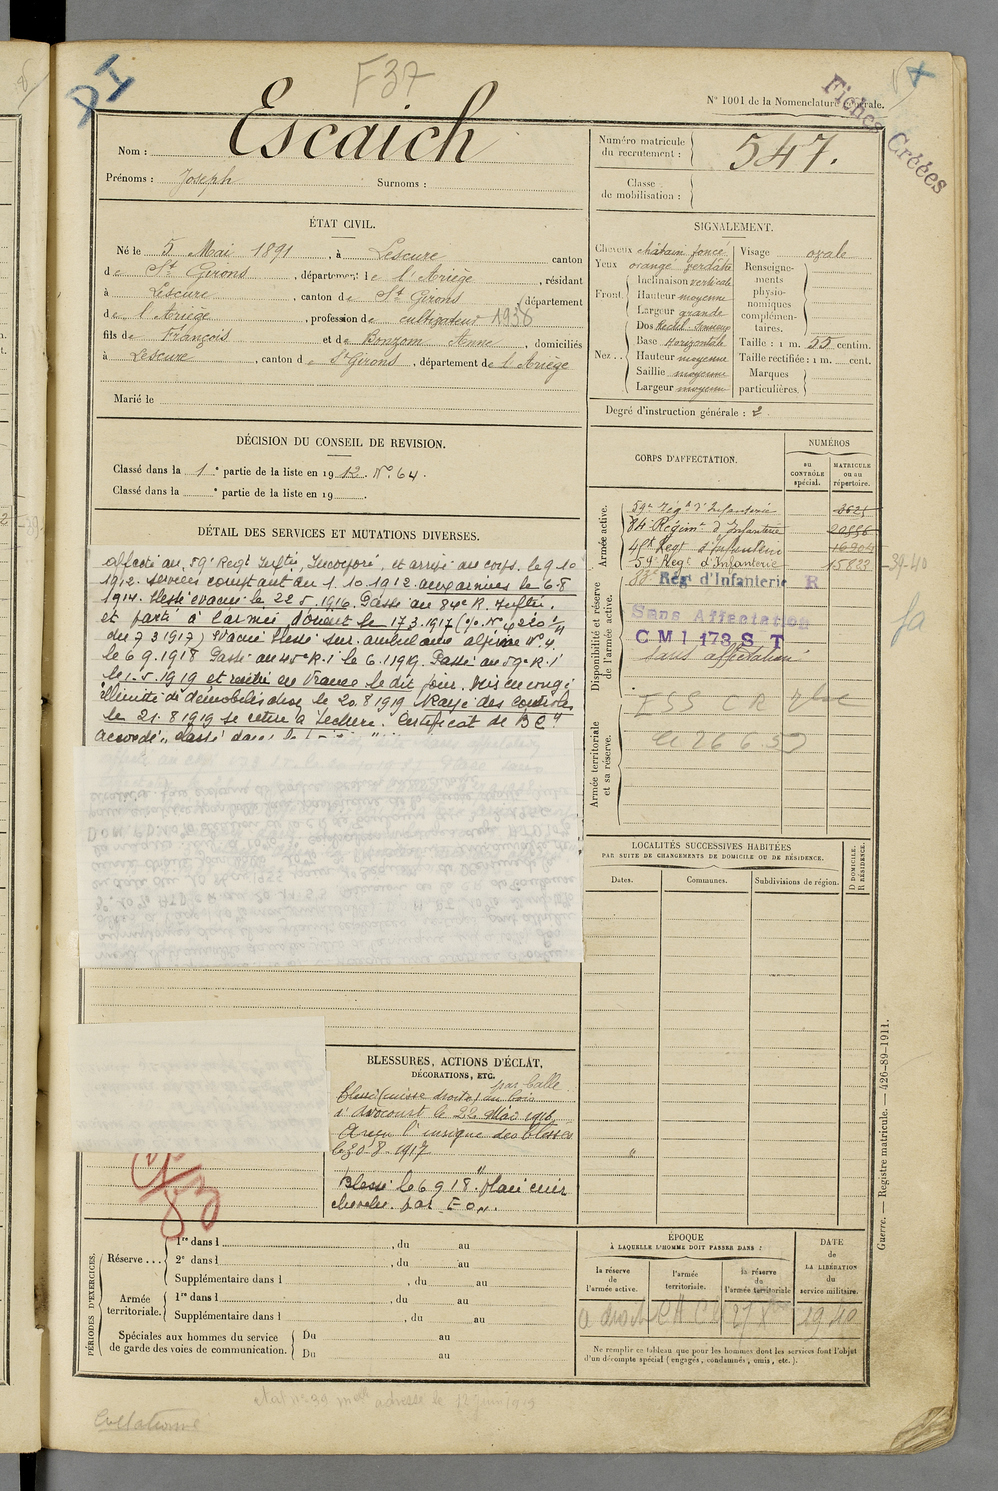 DI
F37
Fiches Créées
N° 1001 de la Nomenclature générale.
Nom : Escaich
Prénoms : Joseph Surnoms :
Numéro matricule du recrutement : 547.
Classe de mobilisation :
ÉTAT CIVIL.
Né le 5 Mai 1891, à Lescure canton
de St Girons, département de l'Ariège, résidant
à Lescure, canton de St Girons, département
de l'Ariège, profession de cultivateur 1936
fils de François et de Bonzom Anne, domiciliés
à Lescure, canton de St Girons, département de l'Ariège
Marié le
SIGNALEMENT.
Cheveux châtain foncé
Yeux orange verdâtre
Front Inclinaison verticale
Hauteur moyenne
Largeur grande
Nez Dos Rectil.
Base Horizontale
Hauteur moyenne
Saillie moyenne
Largeur moyenne
Visage ovale
Renseignements physionomiques complémentaires.
Taille : 1 m. 55 centim.
Taille rectifiée : 1 m. cent.
Marques particulières.
Degré d'instruction générale : 2
DÉCISION DU CONSEIL DE REVISION.
Classé dans la 1e partie de la liste en 1912. N° 64.
Classé dans la e partie de la liste en 19
DÉTAIL DES SERVICES ET MUTATIONS DIVERSES.
affecté au 59e Regt Inftie, Incorporé, et arrivé au corps le 9.10
1912. services comptant du 1.10.1912. aux armées le 6.8
1914. Blessé évacué le 22 5.1916. Passé au 84e R. Inftie.
et parti à l'armée d'orient le 17 3.1917
du 7 3 1917) Evacué blessé sur ambulance alpine N° 4
le 6 9.1918 Passé au 45e R.I le 6.1 1919. Passé au 59e R.I
le 1.5.1919 et rentré en France le dit jour. Mis en congé
illimité de démobilisation le 20.8 1919 Rayé des controles
le 21.8 1919 se retire à Lescure. Certificat de B C
accordé
CORPS D'AFFECTATION.
NUMÉROS
au CONTRÔLE spécial.
MATRICULE ou au répertoire.
Armée active.
59e Régt d'Infanterie 3621
84e Régimt d'Infanterie 20556
45e Regt d'Infanterie 16904
59e Regt d'Infanterie 15823
Disponibilité et réserve de l'armée active.
Régt d'Infanterie R
39-40
Sans Affectation
CMI 173 S T
Sans affectation
Armée territoriale et sa réserve.
26 6 39
LOCALITÉS SUCCESSIVES HABITÉES
PAR SUITE DE CHANGEMENTS DE DOMICILE OU DE RÉSIDENCE.
Dates.
Communes.
Subdivisions de région.
D DOMICILE. R RÉSIDENCE.
BLESSURES, ACTIONS D'ÉCLAT,
DÉCORATIONS, ETC.
par balle
Blessé (cuisse droite) au bois
d'Avocourt le 22 Mai 1916.
A reçu l'insigne des blessés
le 30-8-1917
Blessé le 6 9 18. plaie cuir
chevelu par E O.
PÉRIODES D'EXERCICES.
Réserve
1re dans l , du au
2e dans l , du au
Supplémentaire dans l , du au
Armée territoriale.
1re dans l , du au
Supplémentaire dans l , du au
Spéciales aux hommes du service de garde des voies de communication.
Du au
Du au
ÉPOQUE
À LAQUELLE L'HOMME DOIT PASSER DANS :
la réserve de l'armée active.
l'armée territoriale.
la réserve de l'armée territoriale
DATE de LA LIBÉRATION du service militaire.
1940
Ne remplir ce tableau que pour les hommes dont les services font l'objet
d'un décompte spécial (engagés, condamnés, omis, etc.).
Guerre. — Registre matricule. — 426-89-1911.
adressé le 12 juin 1919
Collationné